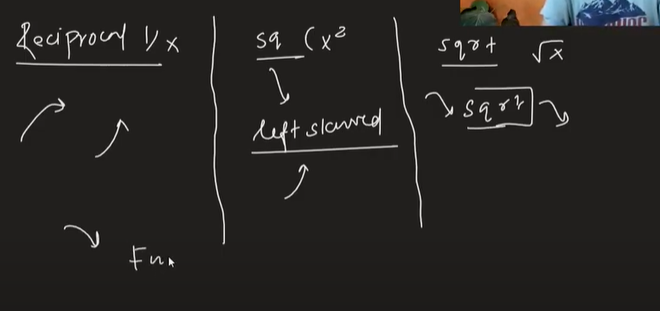 Reciprocal 1/x
sq (x²
left skewed
sqrt √x
sqrt
Fun